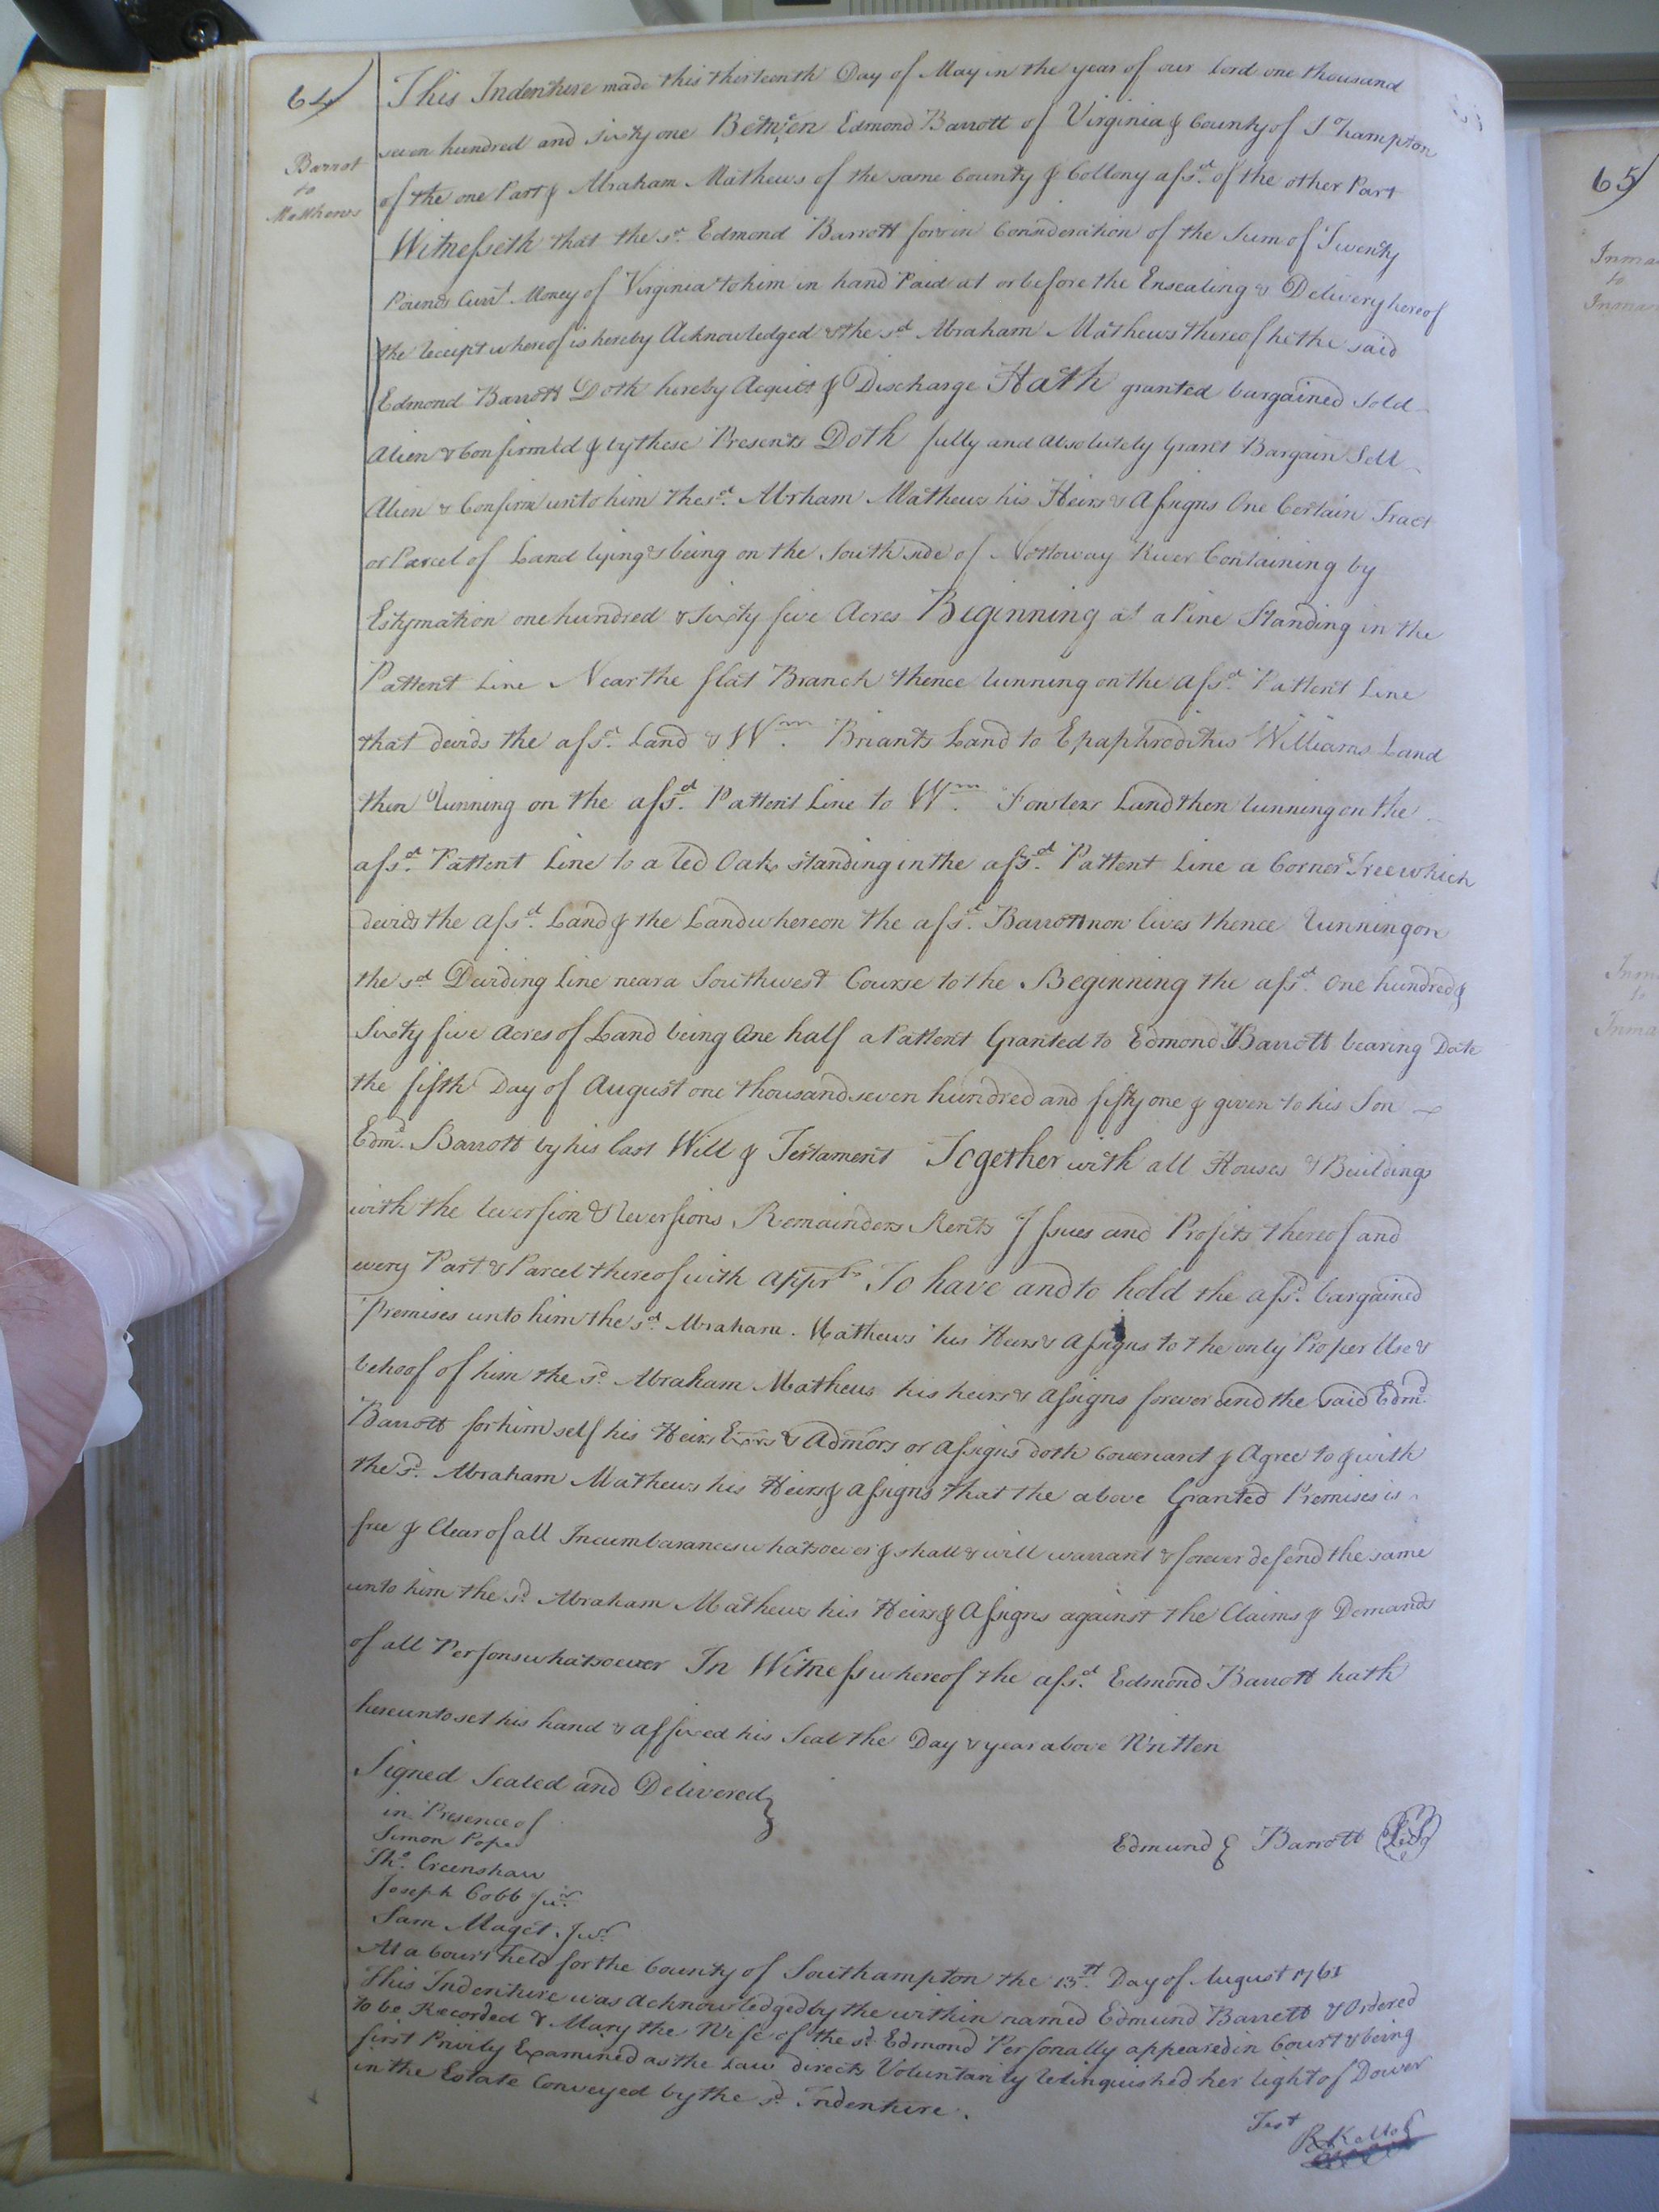 64)
Barrot
to
Matthews
This Indenture made this thirteenth Day of May in the year of our lord one thousand
seven hundred and sixty one Between Edmond Barrott of Virginia & County of S hampton
of the one Part & Abraham Mathews of the same County & Collony afsd. of the other Part
Witnesseth that the sd. Edmond Barrott for & in Consideration of the Sum of Twenty
Pounds Curt Money of Virginia to him in hand Paid at or before the Ensealing & Delivery hereof
the receipt whereof is hereby Acknowledged & the sd Abraham Mathews thereof he the said
Edmond Barrott Doth hereby Acquit & Discharge Hath granted bargained Sold
Alien & Confirmld & by these Presents Doth fully and absolutely Grant Bargain Sell
Alien & Confirm unto him the sd. Abrham Mathews his Heirs & Assigns One Certain Tract
or Parcel of Land lying & being on the South side of Nottoway River Containing by
Estymation one hundred & sixty five Acres Beginning at a Pine Standing in the
Pattent Line Near the flat Branch thence running on the afsd. Pattent Line
that devids the afsd. Land & Wm. Briants Land to Epaphroditus Williams Land
then running on the afsd. Pattent Line to Wm. Fowlers Land then running on the
afsd. Pattent Line to a red Oak standing in the afsd. Pattent Line a Corner Tree which
devids the afsd. Land & the Land whereon the afsd. Barrott now lives thence running on
the sd Deviding Line near a Southwest Course to the Beginning the afsd. One hundred &
Sixty five Acres of Land being One half a Pattent Granted to Edmond Barrott bearing Date
the fifth Day of August one thousand seven hundred and fifty one & given to his Son
Edmd. Barrott by his last Will & Testament Together with all Houses & Buildings
with the reversion & Reversions Remainders Rents Issues and Profits thereof and
every Part & Parcel thereof with Apprts To have and to hold the afsd. bargained
Premises unto him the sd. Abraham Mathews his Heirs & Assigns to the only Proper Use &
behoof of him the sd. Abraham Mathews his heirs & Assigns forever And the said Edmd.
Barrott for him self his Heirs Exors & Admors or Assigns doth Covenant & Agree to & with
the sd. Abraham Mathews his Heirs & Assigns that the above Granted Premises is
free & Clear of all Incumbarances whatsoever & shall & will warrant & forever defend the same
unto him the sd. Abraham Mathews his Heirs & Assigns against the Claims & Demands
of all Persons whatsoever In Witness whereof the afsd. Edmond Barrott hath
hereunto set his hand & affixed his Seal the Day & year above Written
Signed Sealed and Delivered
in Presence of
Simon Pope
Edmund E Barrott LS
Thos. Crenshaw
Joseph Cobb Junr.
Sam Maget Junr.
At a Court held for the County of Southampton the 13th. Day of August 1761
This Indenture was Acknowledged by the within named Edmund Barrett & Ordered
to be Recorded & Mary the Wife of the sd. Edmond Personally appeared in Court & being
first Privily Examined as the Law directs Voluntarily relinquished her right of Dower
in the Estate Conveyed by the sd. Indenture.
Test
65)
to
to